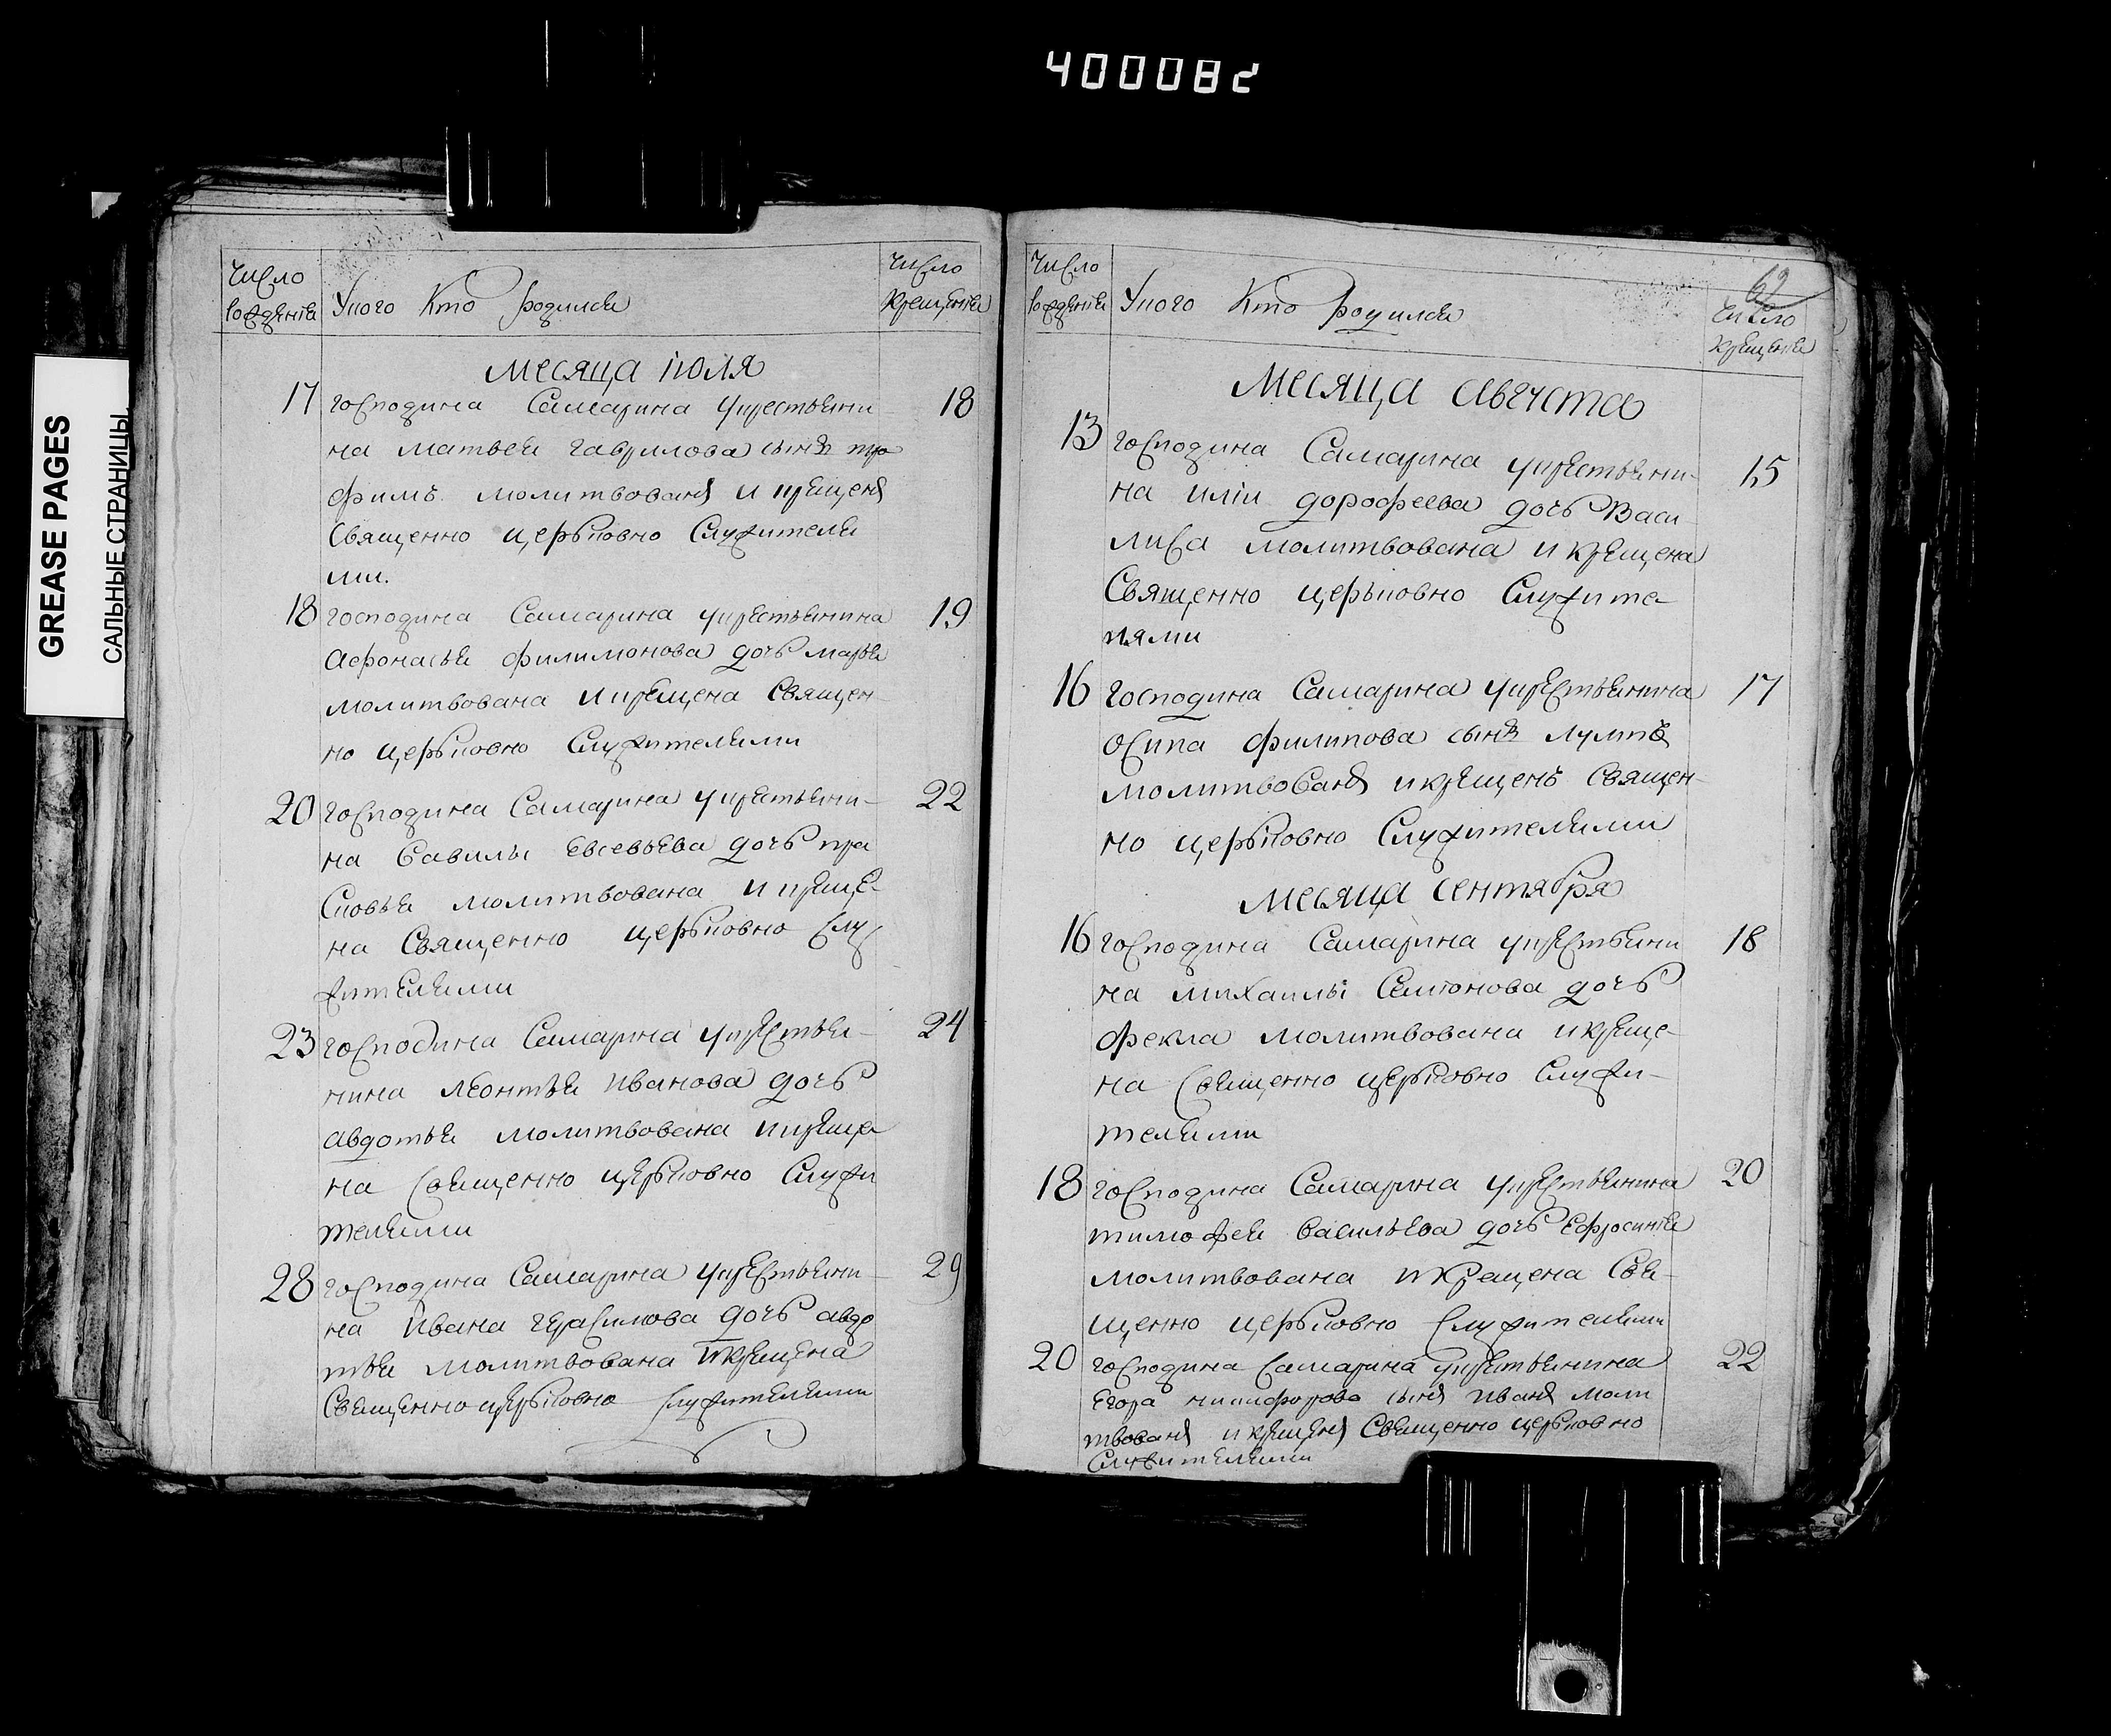 400082
GREASE PAGES
САЛЬНЫЕ СТРАНИЦЫ
Число рождения
У кого кто родился
Число крещения
месяца июля
17 господина Самарина у крестьяни 18
на матвея гаврилова сынъ тро
фимъ молитвованъ и крещенъ
священно церьковно служителя
ми.
18 господина Самарина у крестьянина 19
афонасья филимонова дочь марья
молитвована и крещена священ
но церьковно служителями
20 господина Самарина у крестьяни- 22
на Савилы евсевьева дочь пра
сковья молитвована и креще-
на священно церьковно слу
жителями
23 господина Самарина у крестья- 24
нина леонтья иванова дочь
авдотья молитвована и креще
на священно церьковно служи
телями
28 господина Самарина у крестьяни- 29
на ивана герасимова дочь авдо
тья молитвована и крещена
священно церьковно служителями
62
Число рождения
У кого кто родился
Число крещения
Месяца августа
13 господина Самарина у крестьяни- 15
на иліи дорофеева дочь Васи
лиса молитвована и крещена
Священно церьковно служите
лями
16 господина Самарина у крестьянина 17
осипа филипова сынъ луппъ
молитвованъ и крещенъ священ-
но церьковно служителями
месяца сентября
16 господина Самарина у крестьяни 18
на михаилы Семіонова дочь
фекла молитвована и креще-
на священно церьковно служи-
телями
18 господина Самарина у крестьянина 20
тимофея васильева дочь ефросинья
молитвована и крещена свя-
щенно церьковно служителями
20 господина Самарина у крестьянина 22
егора никифорова сынъ иванъ моли
твованъ и крещенъ священно церьковно
служителями